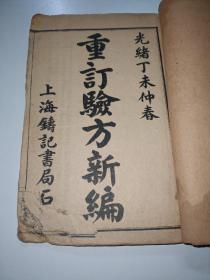 光緒丁未仲春
重訂驗方新編
上海鑄記書局石